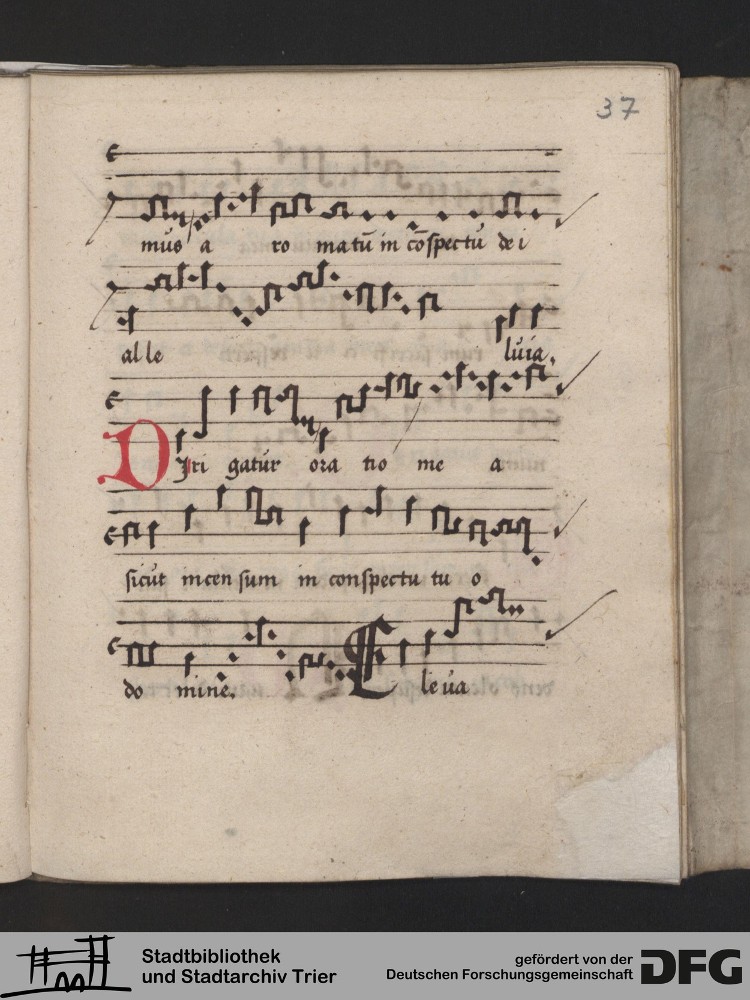 37
mus a ro matū in cōspectu de i
al le luia,
Diri gatur ora tio me a
sicut incen sum in conspectu tu o
do mine. E le ua
Stadtbibliothek
und Stadtarchiv Trier
gefördert von der
Deutschen Forschungsgemeinschaft
DFG